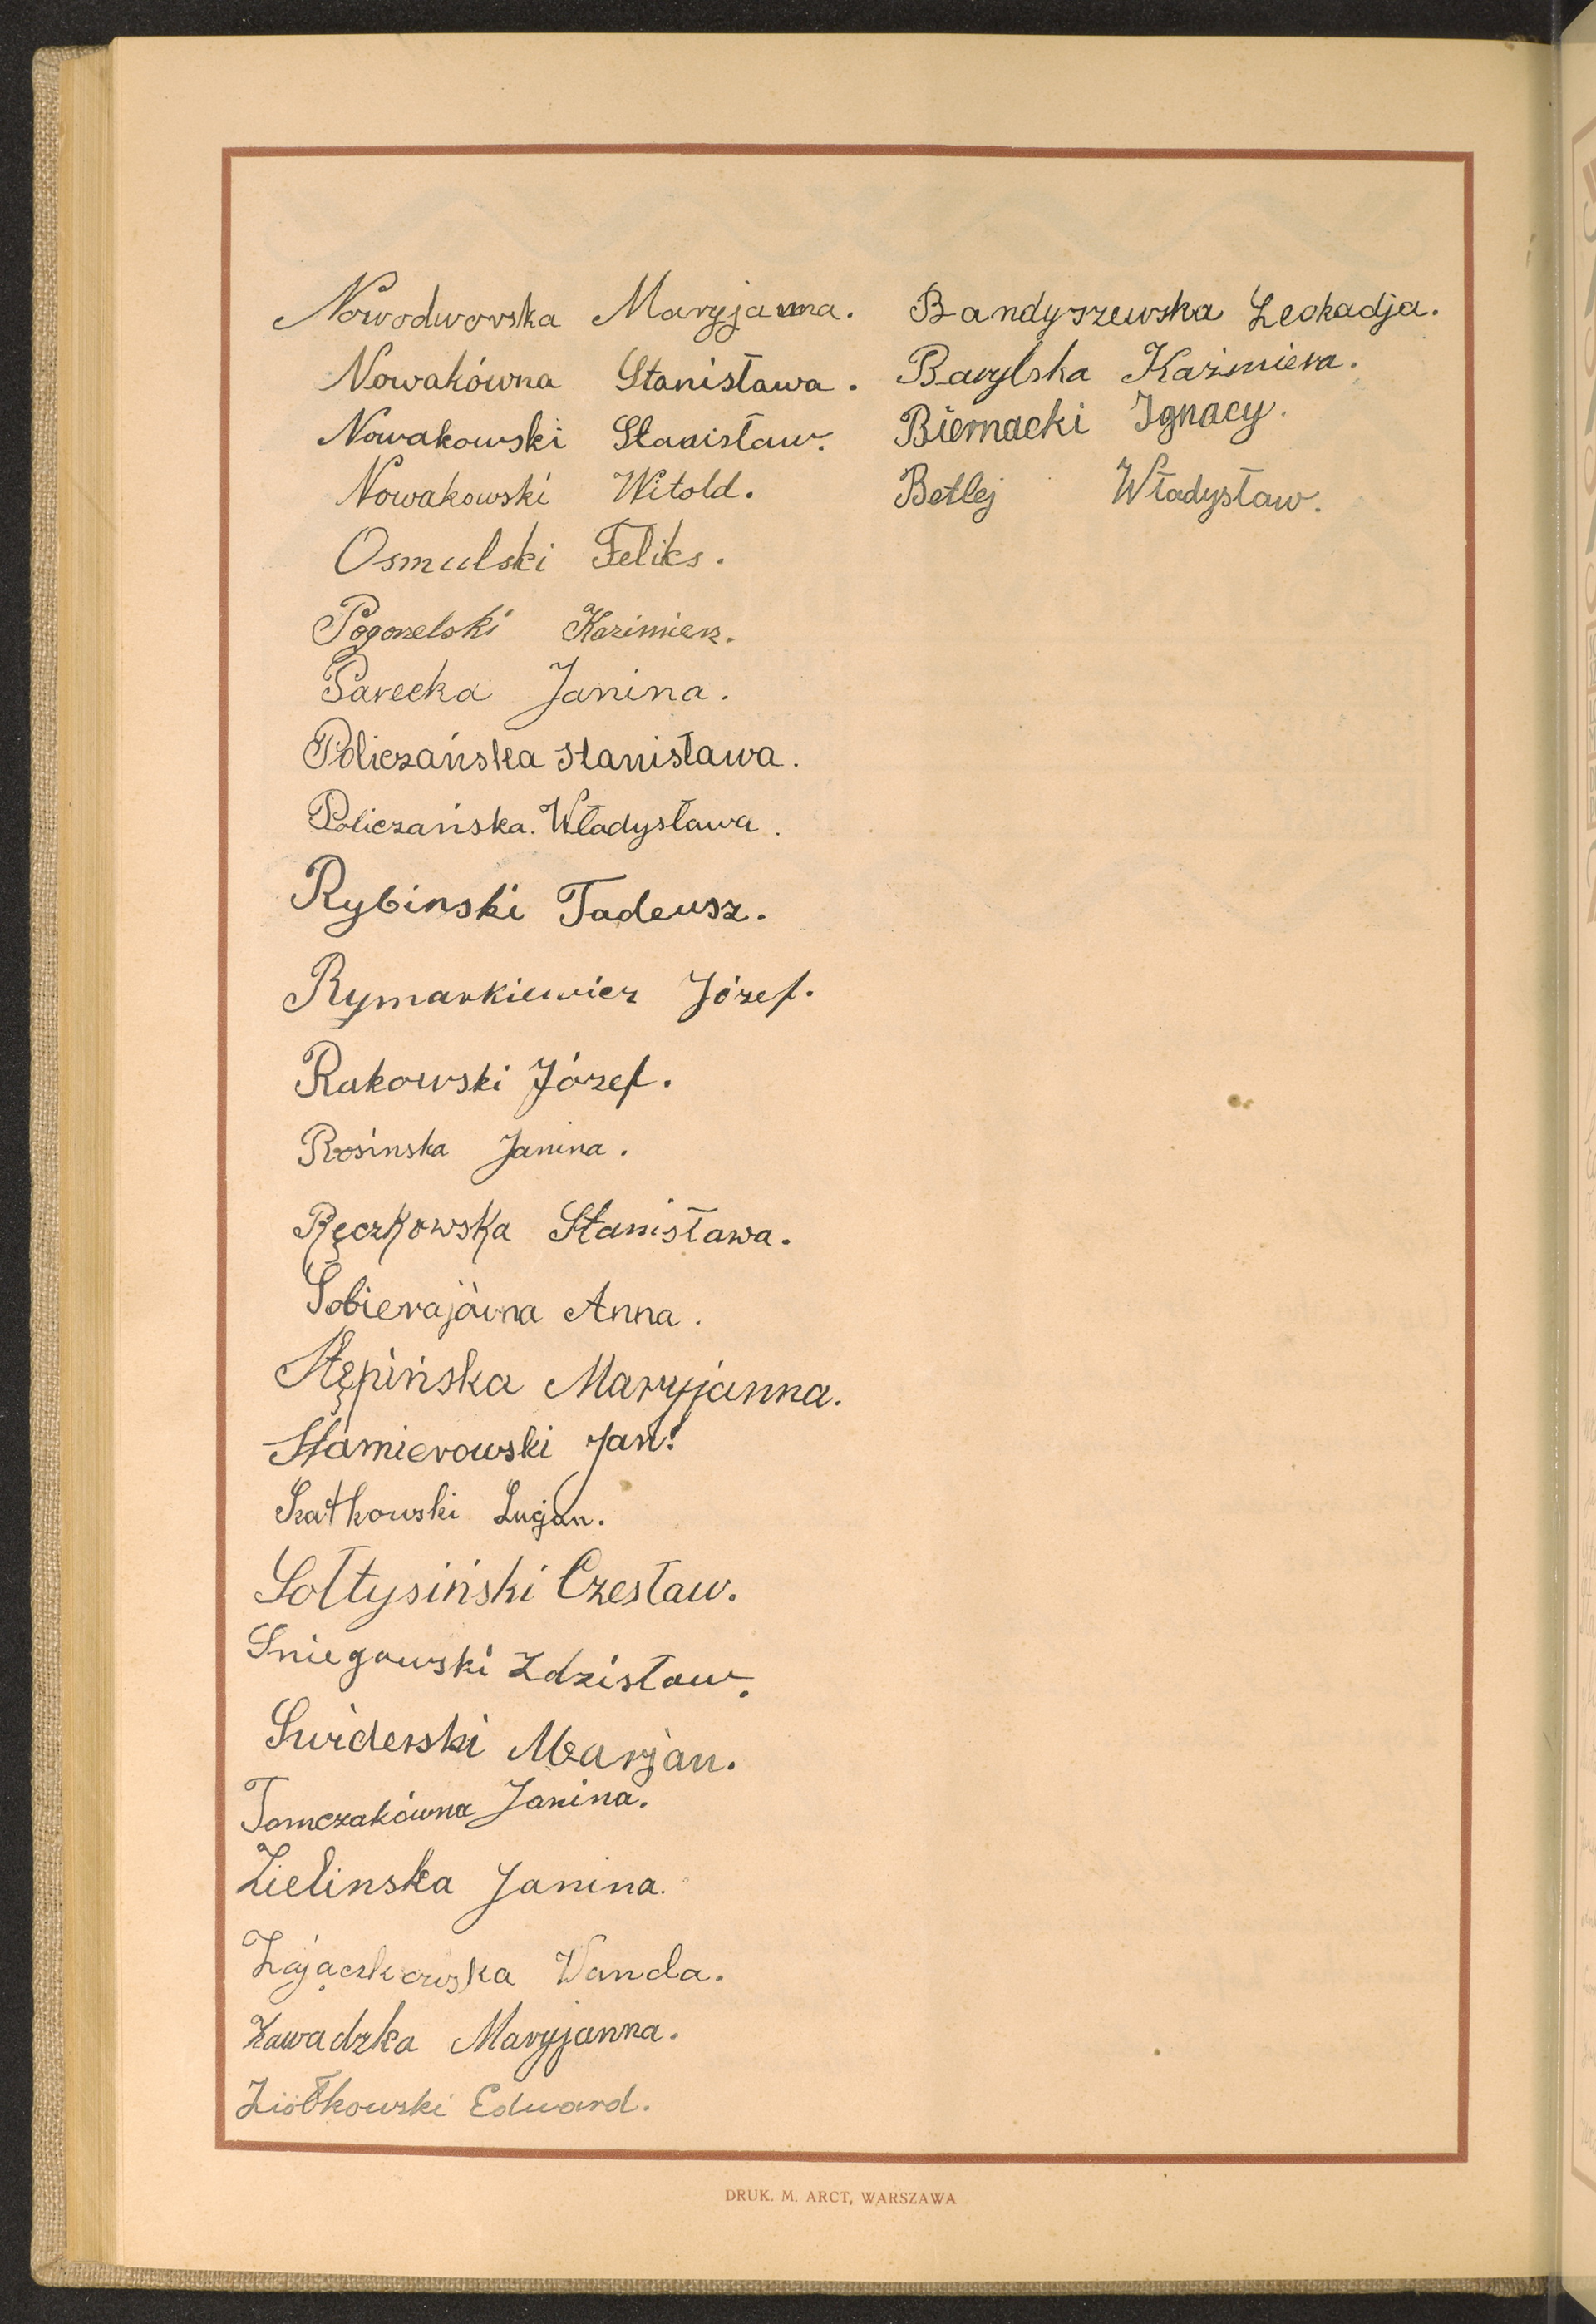 Nowodworska Maryjanna.
Nowakówna Stanisława.
Nowakowski Stanisław.
Nowakowski Witold.
Osmulski Feliks.
Pogorzelski Kazimierz.
Parecka Janina.
Policzańska Stanisława.
Policzańska. Władysława.
Rybinski Tadeusz.
Rymarkiewicz Józef.
Rakowski Józef.
Rosinska Janina.
Ręczkowska Stanisława.
Sobierajówna Anna.
Stępińska Maryjanna.
Stamierowski Jan.
Szatkowski Lucjan.
Sołtysiński Czesław.
Sniegowski Zdzisław.
Swiderski Marjan.
Tomczakówna Janina.
Zielinska Janina.
Zajączkowska Wanda.
Zawadzka Maryjanna.
Ziółkowski Edward.
Bandyszewska Leokadja.
Barylska Kaźmiera.
Biernacki Ignacy.
Betlej Władysław.
DRUK. M. ARCT, WARSZAWA